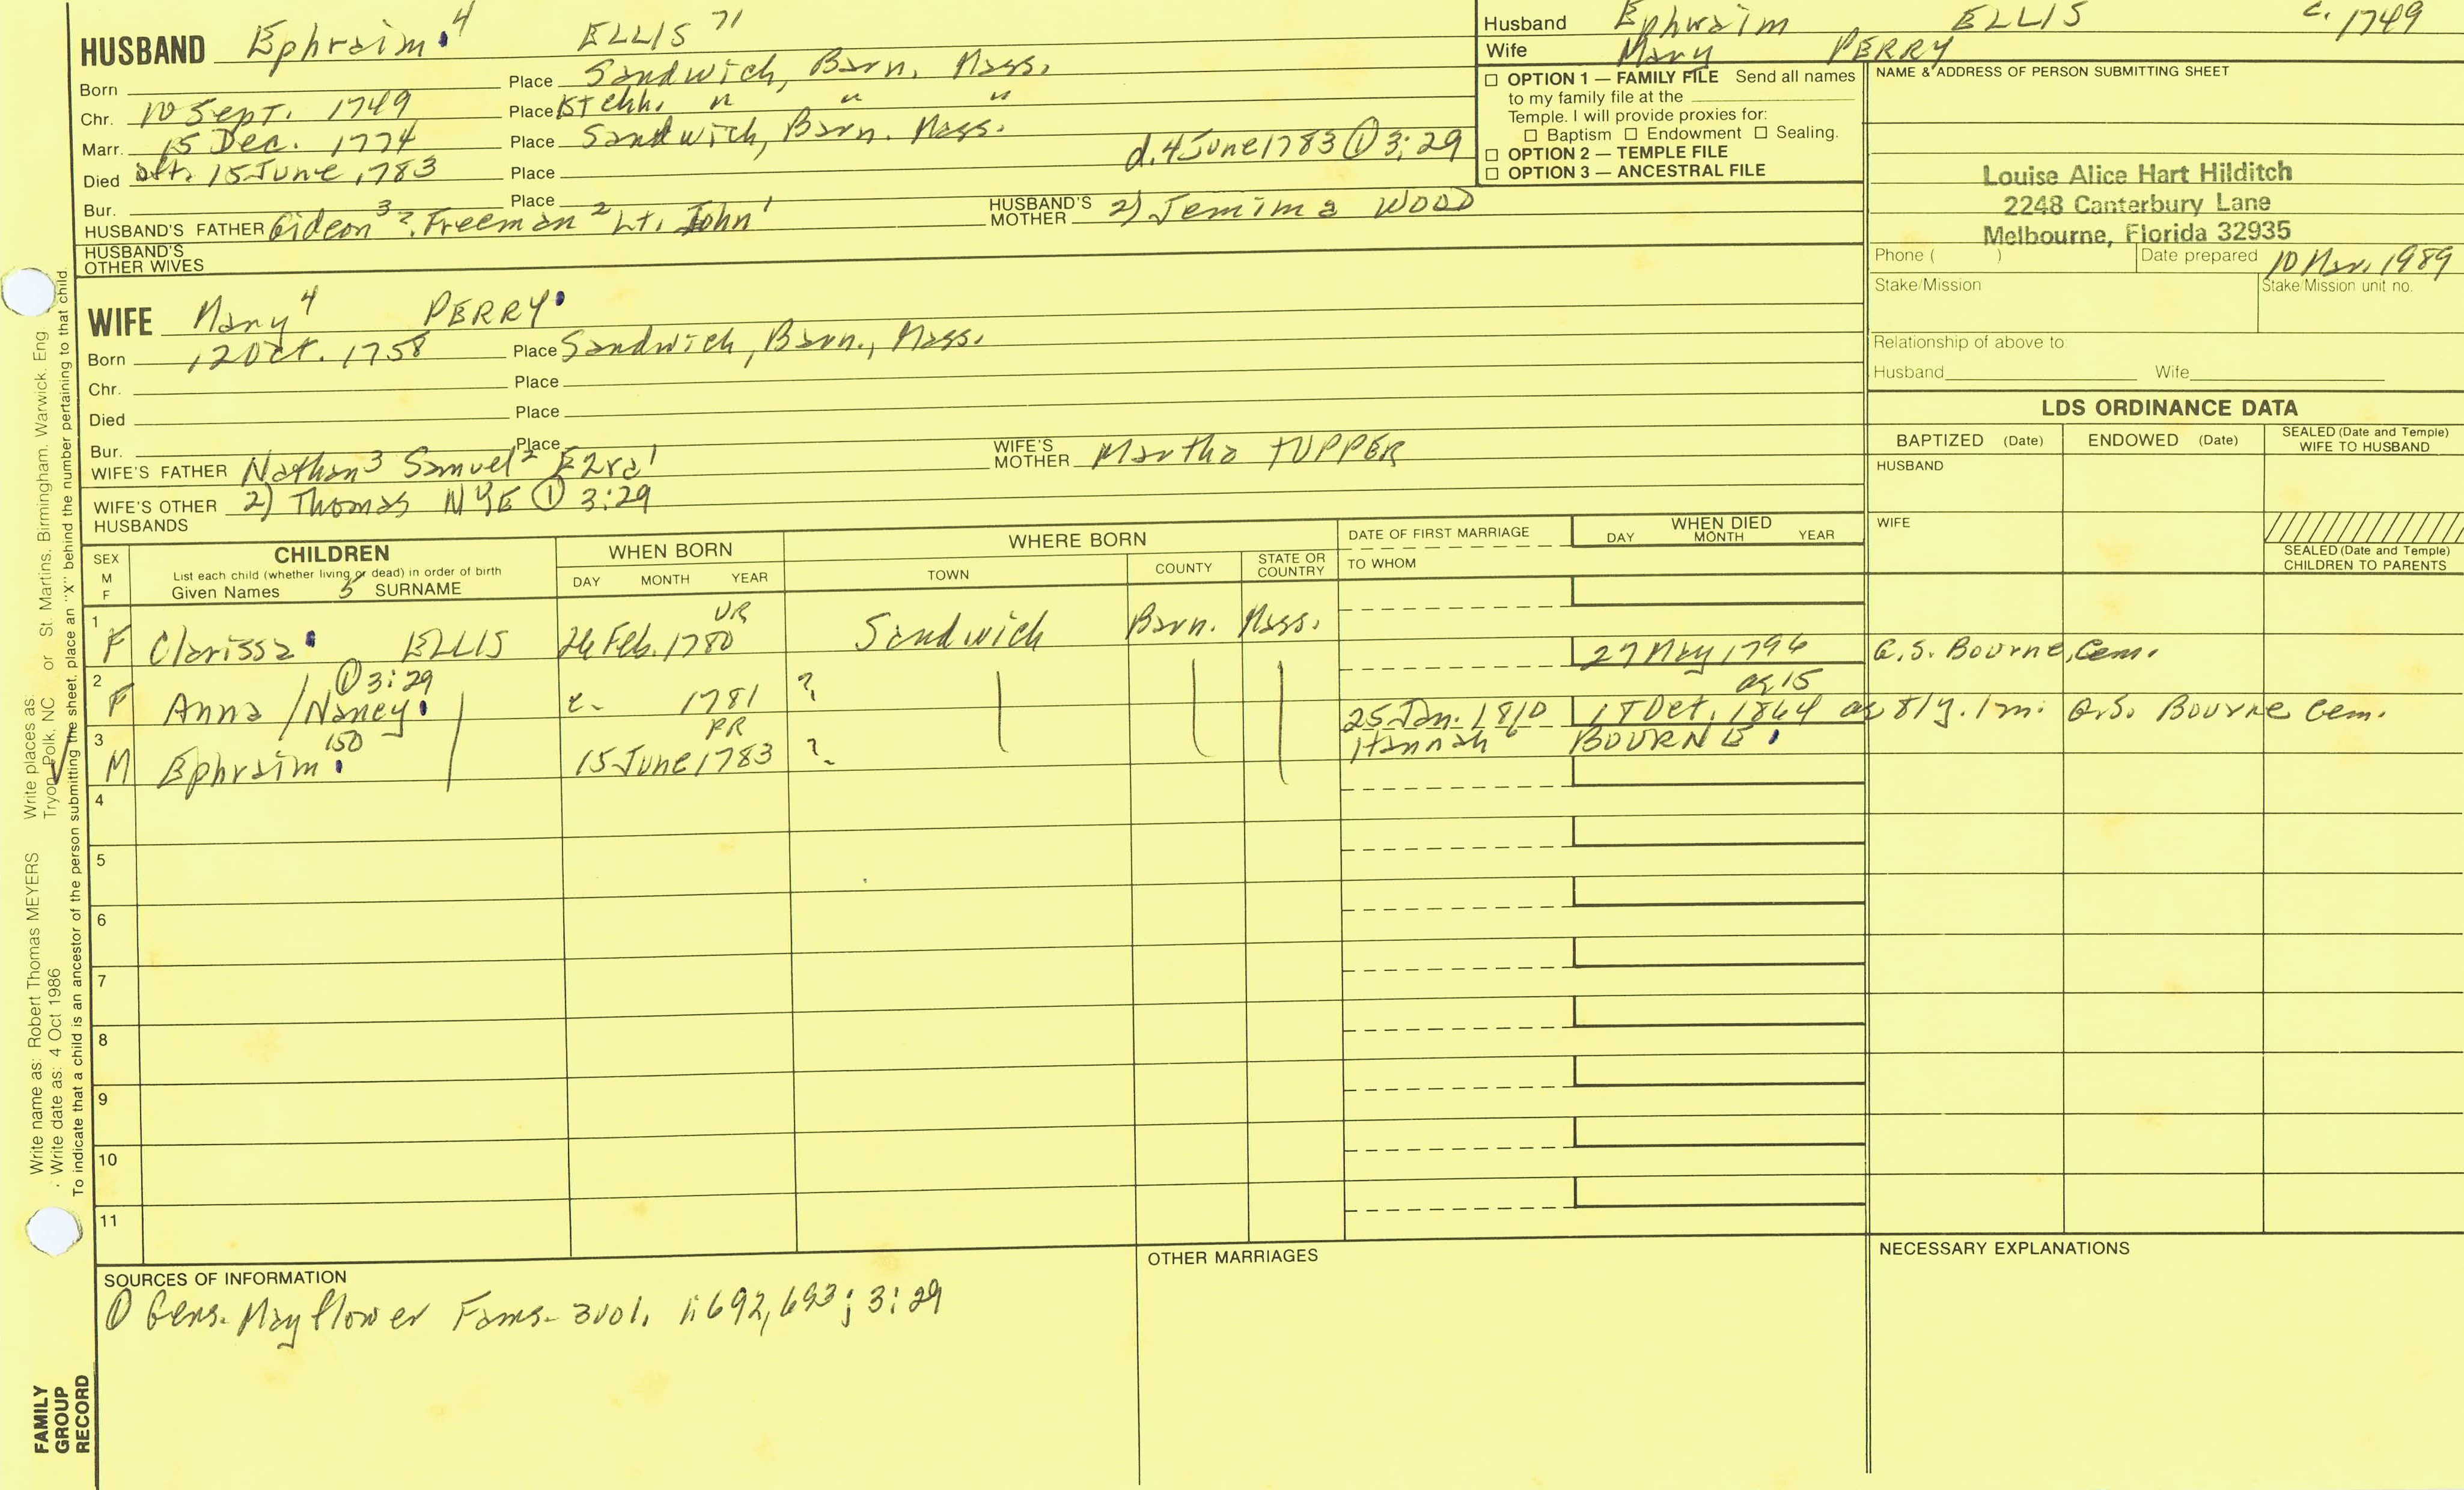 HUSBAND Ephraim 4 ELLIS 71
Born Place Sandwich, Barn. Mass.
Chr. 10 Sept. 1749 Place 1st chh. " " "
Marr. 15 Dec. 1774 Place Sandwich, Barn. Mass.
d. 4 June 1783 ① 3:29
Died aft. 15 June, 1783 Place
Bur. Place
HUSBAND'S FATHER Gideon 3 ?. Freeman 2 Lt. John 1 HUSBAND'S MOTHER 2) Jemima WOOD
HUSBAND'S OTHER WIVES
Husband Ephraim ELLIS c. 1749
Wife Mary PERRY
☐ OPTION 1 — FAMILY FILE Send all names
to my family file at the
Temple. I will provide proxies for:
☐ Baptism ☐ Endowment ☐ Sealing.
☐ OPTION 2 — TEMPLE FILE
☐ OPTION 3 — ANCESTRAL FILE
NAME & ADDRESS OF PERSON SUBMITTING SHEET
Louise Alice Hart Hilditch
2248 Canterbury Lane
Melbourne, Florida 32935
Phone ( ) Date prepared 10 1989
Stake/Mission Stake/Mission unit no.
Relationship of above to
Husband Wife
WIFE Mary 4 PERRY
Born 12 Oct. 1758 Place Sandwich, Barn., Mass.
Chr. Place
Died Place
Bur. Place
WIFE'S FATHER Nathan 3 Samuel 2 Ezra 1 WIFE'S MOTHER Martha TUPPER
WIFE'S OTHER HUSBANDS 2) Thomas NYE ① 3:29
LDS ORDINANCE DATA
BAPTIZED (Date) ENDOWED (Date) SEALED (Date and Temple) WIFE TO HUSBAND
HUSBAND
WIFE
SEALED (Date and Temple) CHILDREN TO PARENTS
SEX M F
CHILDREN
List each child (whether living or dead) in order of birth
Given Names SURNAME
WHEN BORN
DAY MONTH YEAR
WHERE BORN
TOWN COUNTY STATE OR COUNTRY
DATE OF FIRST MARRIAGE
TO WHOM
WHEN DIED
DAY MONTH YEAR
VR
1 F Clarissa ELLIS 26 Feb. 1780 Sandwich Barn. Mass. 27 May 1796 G.S. Bourne, Cem.
① 3:29 ag 15
2 F Anna / Nancy c. 1781 ?
150 PR 25 Jan. 1810 1864 ag 81y. 1m. G.S. Bourne Cem.
3 M Ephraim 15 June 1783 ? Hannah 6 BOURNE
4
5
6
7
8
9
10
11
SOURCES OF INFORMATION
① Gens. Mayflower Fams. 3 vol. 1:692,693; 3:29
OTHER MARRIAGES
NECESSARY EXPLANATIONS
Write name as: Robert Thomas MEYERS Write places as: Tryon, Polk, NC or St. Martins, Birmingham, Warwick, Eng
Write date as: 4 Oct 1986
To indicate that a child is an ancestor of the person submitting the sheet, place an "X" behind the number pertaining to that child.
FAMILY
GROUP
RECORD